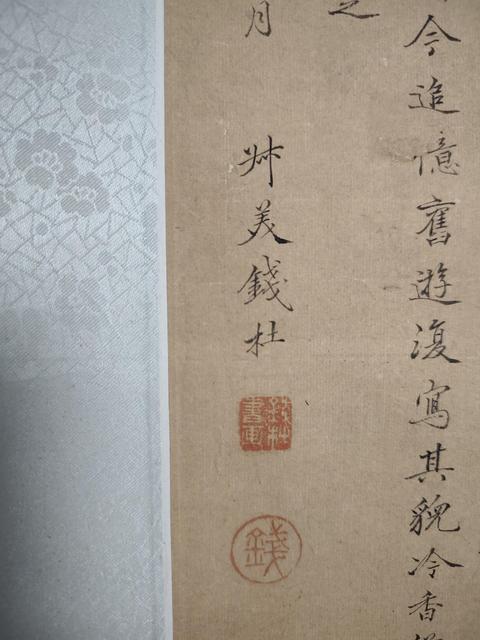 今追憶舊遊復寫其貌冷香
之
月 叔美錢杜
錢杜書画
錢